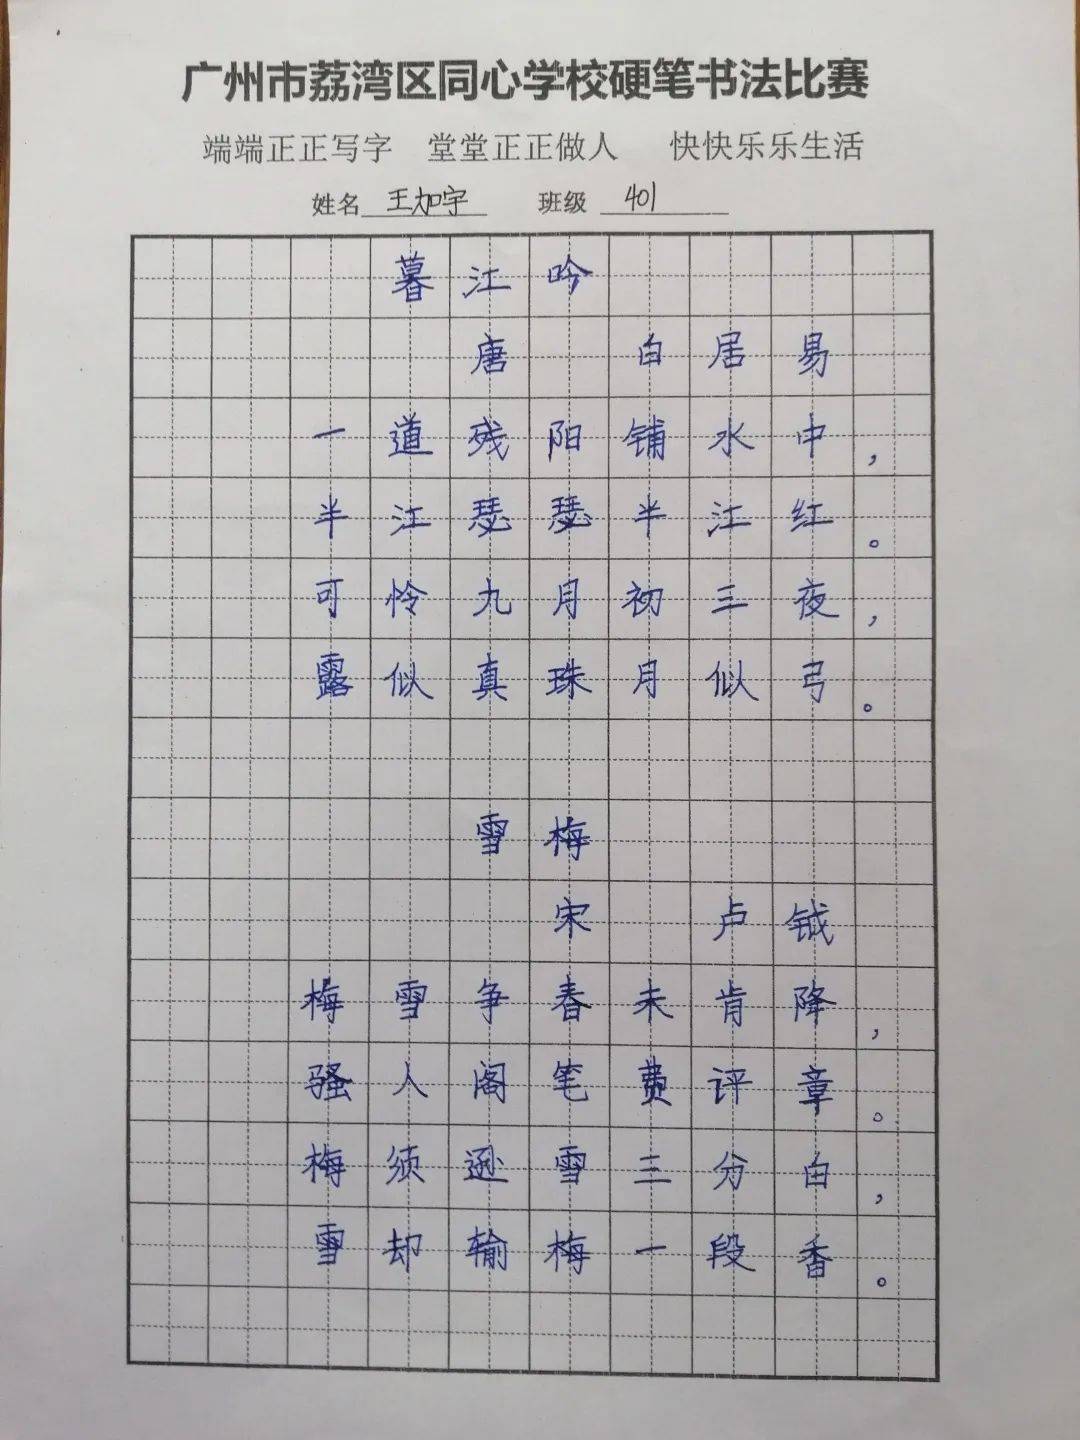 广州市荔湾区同心学校硬笔书法比赛
端端正正写字 堂堂正正做人 快快乐乐生活
姓名 王加宇 班级 401
暮江吟
唐 白居易
一道残阳铺水中，
半江瑟瑟半江红。
可怜九月初三夜，
露似真珠月似弓。
雪梅
宋 卢钺
梅雪争春未肯降，
骚人阁笔费评章。
梅须逊雪三分白，
雪却输梅一段香。